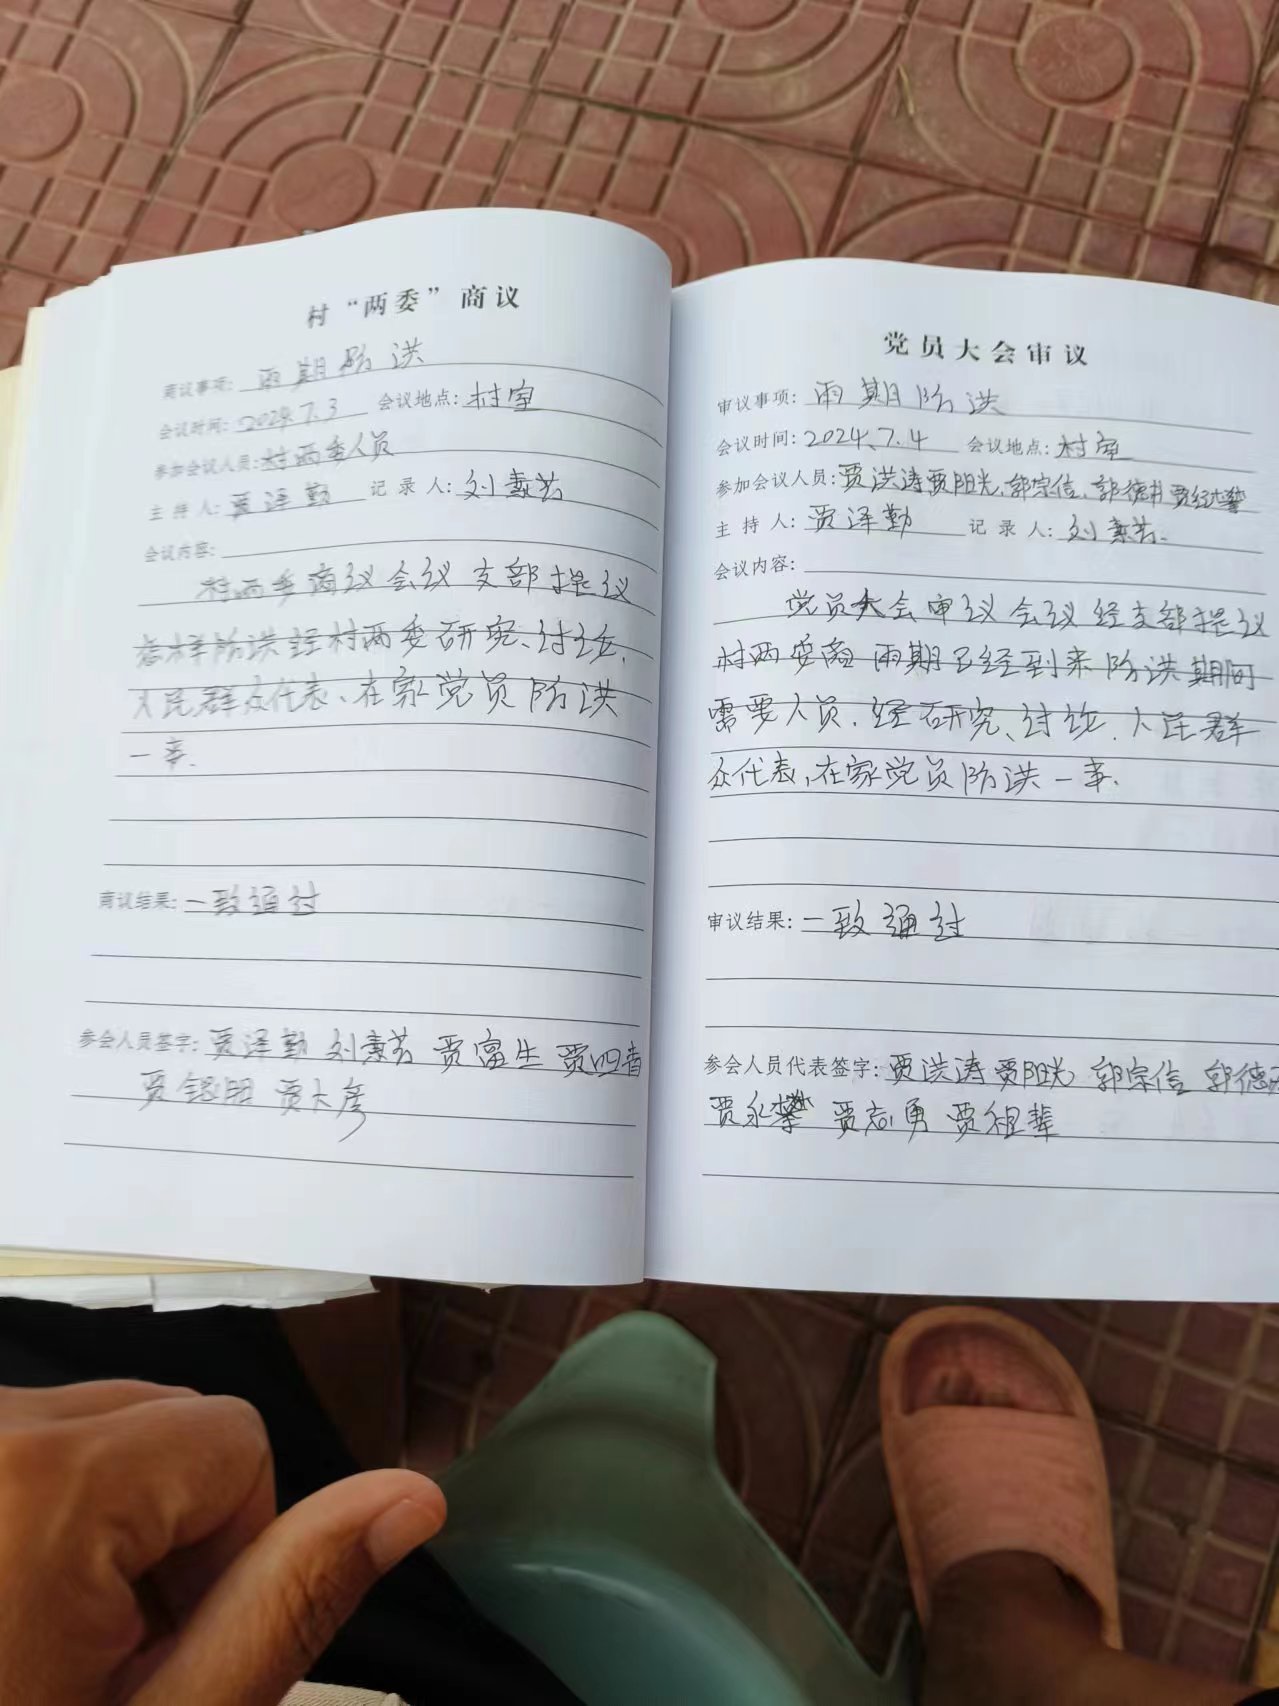 村“两委”商议
商议事项: 雨期防洪
会议时间: 2024.7.3 会议地点: 村室
参加会议人员: 村两委人员
主持人: 贾泽勤 记录人: 刘素芸
会议内容:
村两委商议会议 支部提议
怎样防洪经村两委研究、讨论,
人民群众代表、在家党员防洪
一事.
商议结果: 一致通过
参会人员签字: 贾泽勤 刘素芸 贾富生 贾四者
贾银明 贾大彦
党员大会审议
审议事项: 雨期防洪
会议时间: 2024.7.4 会议地点: 村室
参加会议人员: 贾洪涛贾阳光,郭宗信,郭德
主持人: 贾泽勤 记录人: 刘素芸.
会议内容:
党员大会审议会议 经支部提议
村两委商 雨期已经到来 防洪期间
需要人员.经研究、讨论.人民群
众代表,在家党员防洪一事.
审议结果: 一致通过
参会人员代表签字: 贾洪涛 贾阳光 郭宗信 郭德
贾永攀 贾志勇 贾祖辈